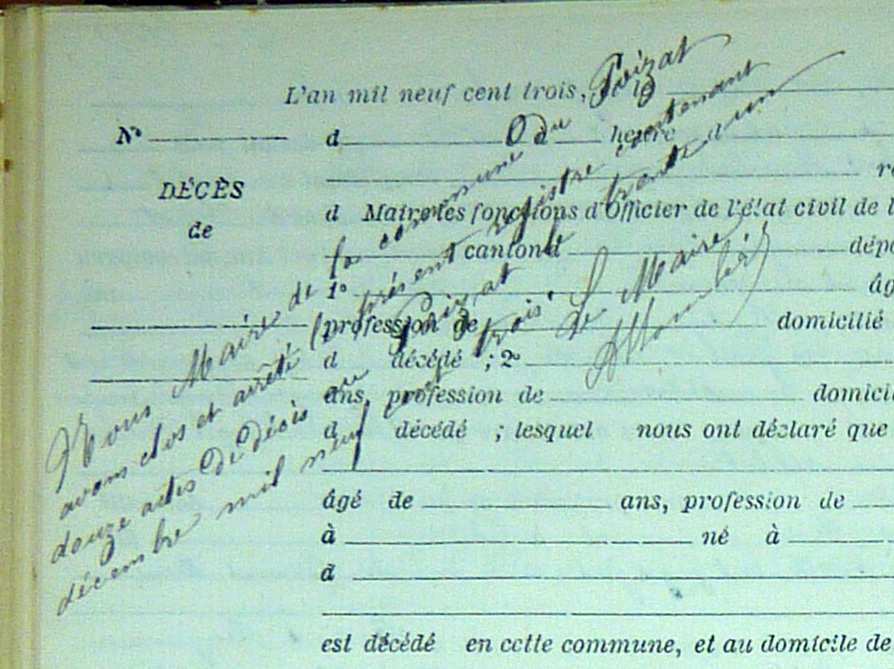 L'an mil neuf cent trois, et le
N° d heure d
DÉCÈS
de
d Maire les fonctions d'Officier de l'état civil de l
canton d dépa
1° âg
profession de domicilié
d décédé ; 2°
ans, profession de domicil
d décédé ; lesquel nous ont déclaré que
âgé de ans, profession de
à né à
d
est décédé en cette commune, et au domicile de
Nous Maire de la commune du Poizat
avons clos et arrêté le présent registre contenant
douze actes de décès au Poizat le trente un
décembre mil neuf cent trois. Le Maire